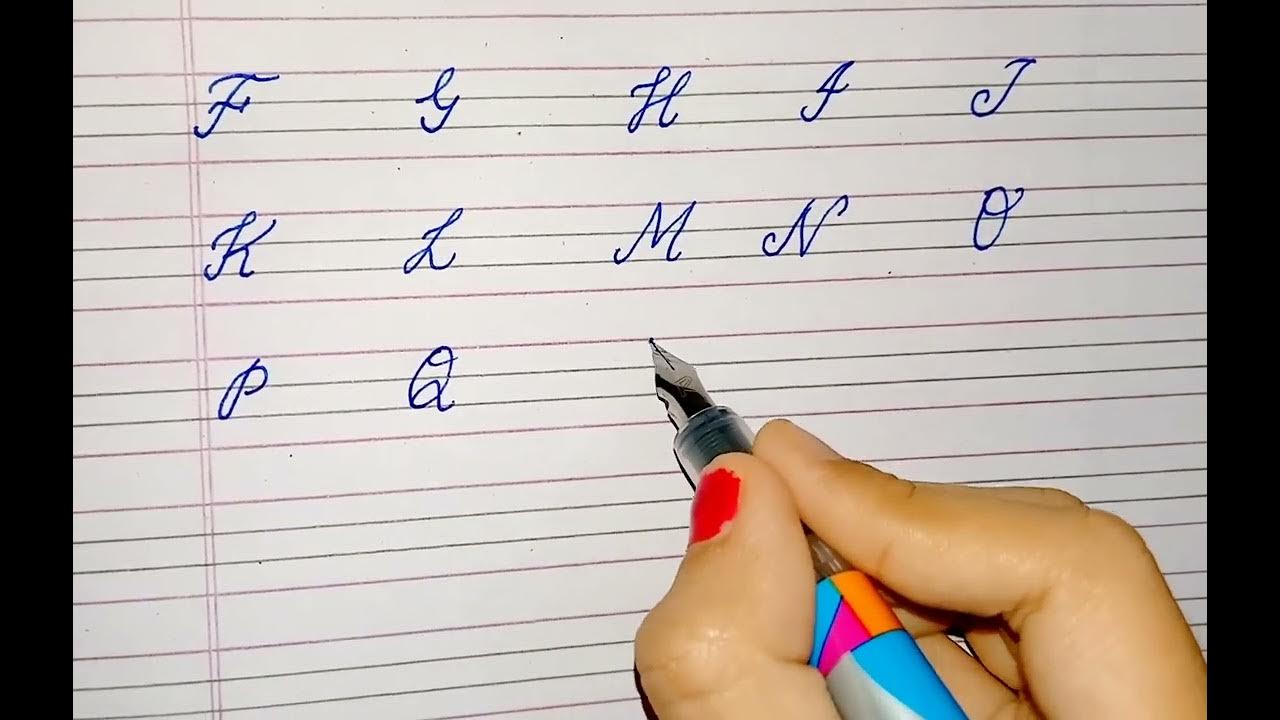 F G H I J
K L M N O
P Q